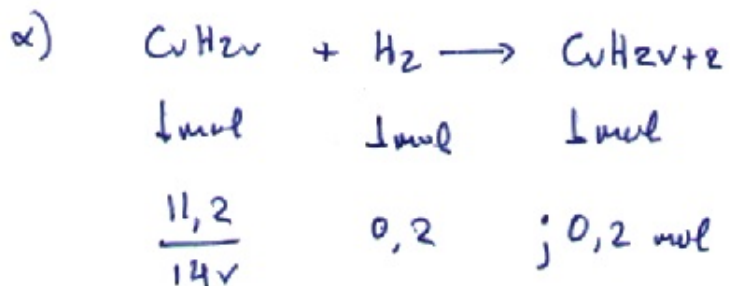 α) CνH2ν + H2 → CνH2ν+2
1mol 1mol 1mol
11,2 / 14ν 0,2 ; 0,2 mol